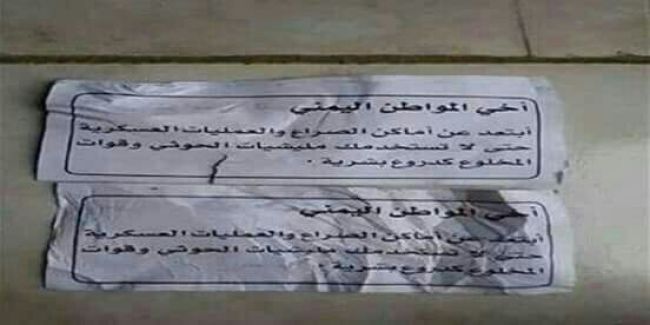 أخي المواطن اليمني
أبتعد عن أماكن الصراع والعمليات العسكرية
حتى لا تستخدمك مليشيات الحوثي وقوات
المخلوع كدروع بشرية .
أخي المواطن اليمني
أبتعد عن أماكن الصراع والعمليات العسكرية
حتى لا تستخدمك مليشيات الحوثي وقوات
المخلوع كدروع بشرية .